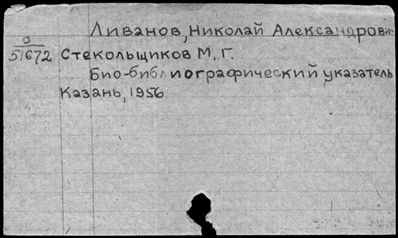 Ливанов, Николай Александрович
О
51672 Стекольщиков М. Г.
Био-библиографический указатель
Казань, 1956